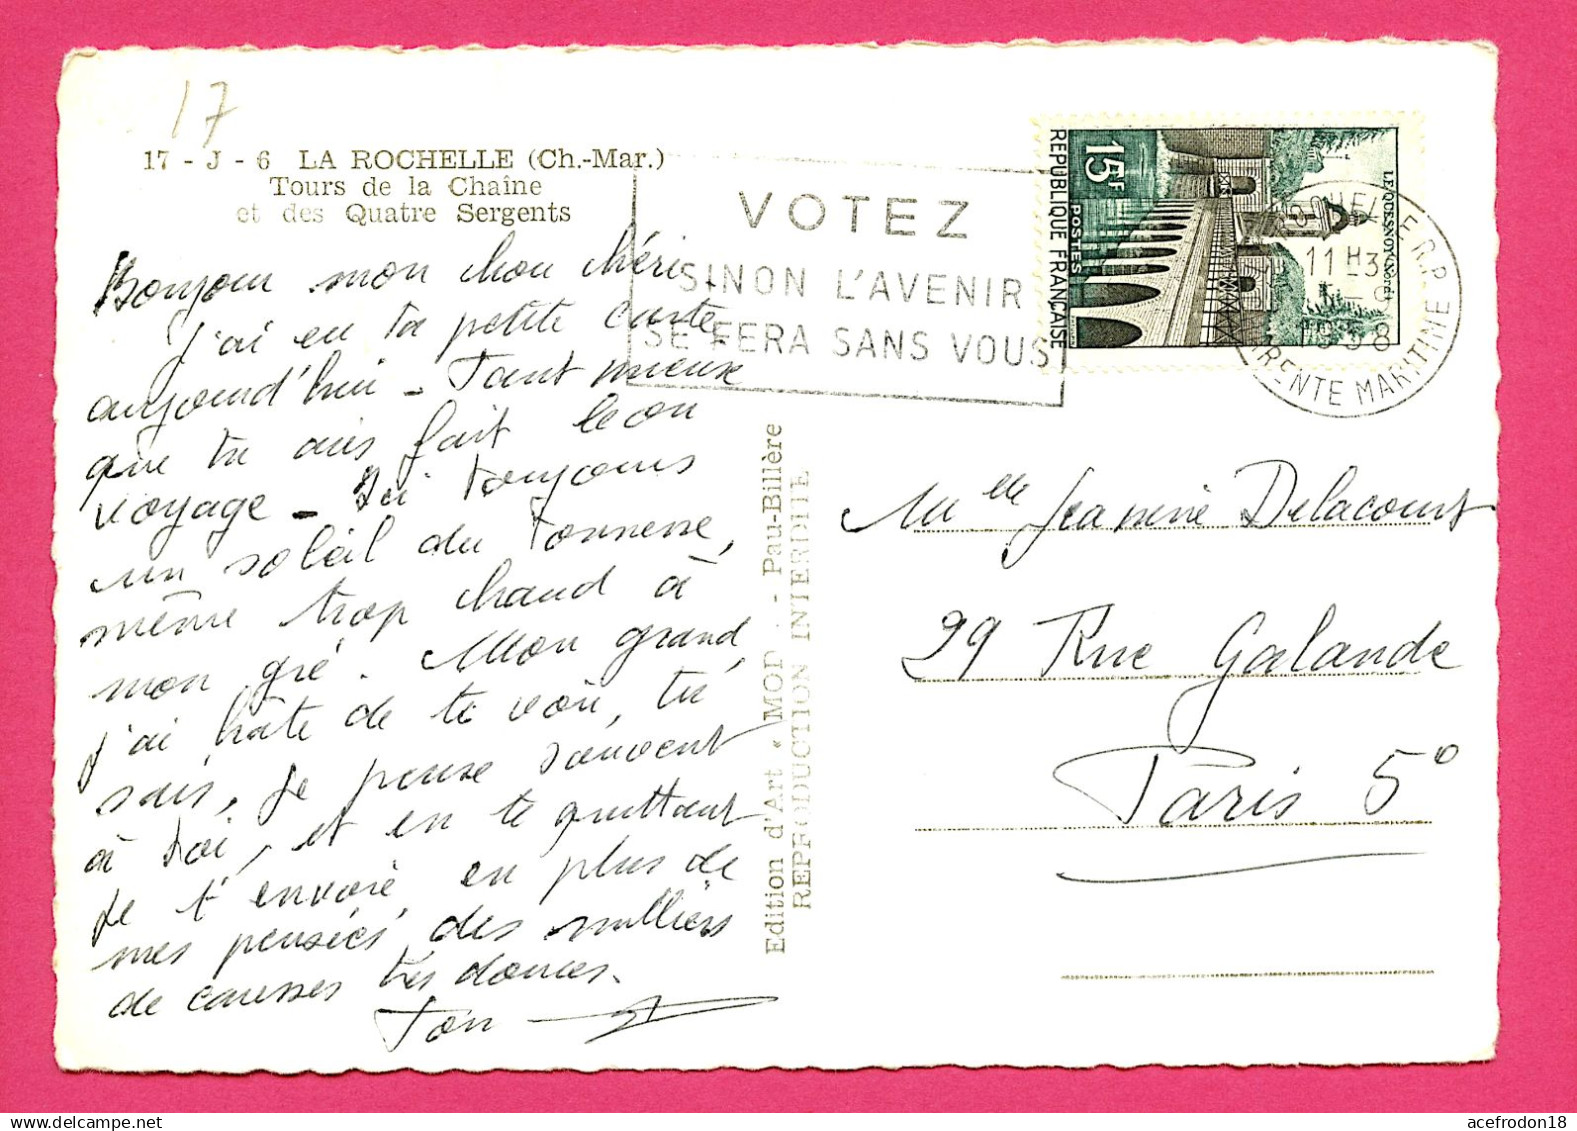 17
17 - J - 6 LA ROCHELLE (Ch.-Mar.)
Tours de la Chaîne
et des Quatre Sergents
Bonjour mon chou chéri.
j'ai eu ta petite carte,
aujourd'hui - Tant mieux
que tu ais fait bon
voyage - Ici toujours
un soleil du tonnerre,
même trop chaud à
mon gré. Mon grand,
j'ai hâte de te voir, tu
sais, je pense souvent
à toi, et en te quittant
je t'envoie, en plus de
mes pensées, des milliers
de caresses très douces.
Ton
Edition d'Art « MOD - Pau-Billère
REPRODUCTION INTERDITE
VOTEZ
SINON L'AVENIR
SE FERA SANS VOUS
15F
POSTES
REPUBLIQUE FRANÇAISE
LE QUESNOY (Nord)
ROCHELLE R.P.
11 H 3
1958
RENTE MARITIME
Mlle Jeanine Delacourt
29 Rue Galande
Paris 5°
acefrodon18